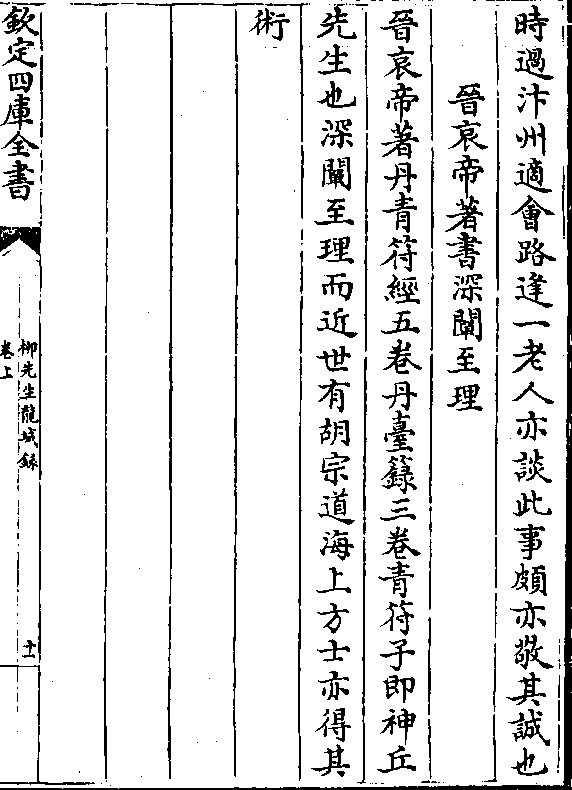 時過汴州適會路逢一老人亦談此事頗亦敬其誠也
晉哀帝著書深闡至理
晉哀帝著丹青符經五卷丹臺籙三卷青符子即神丘
先生也深闡至理而近世有胡宗道海上方士亦得其
術
欽定四庫全書
柳先生龍城錄
卷上
十一